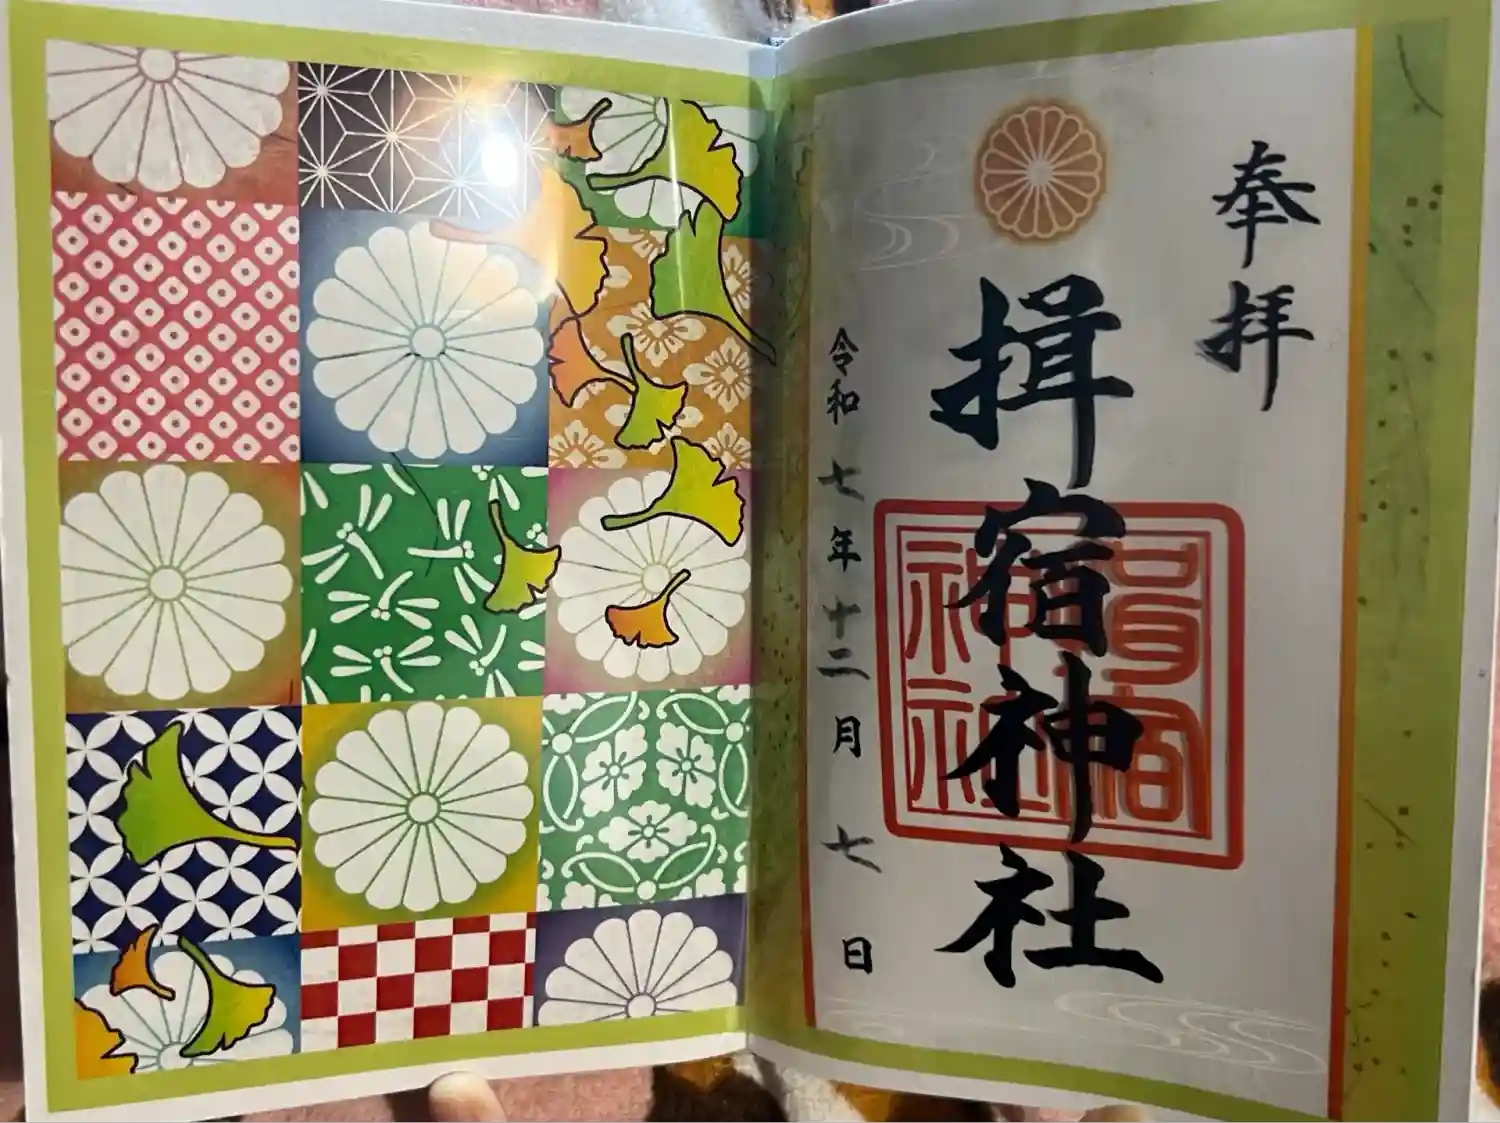 奉拝
揖宿神社
揖宿神社
令和七年十二月七日